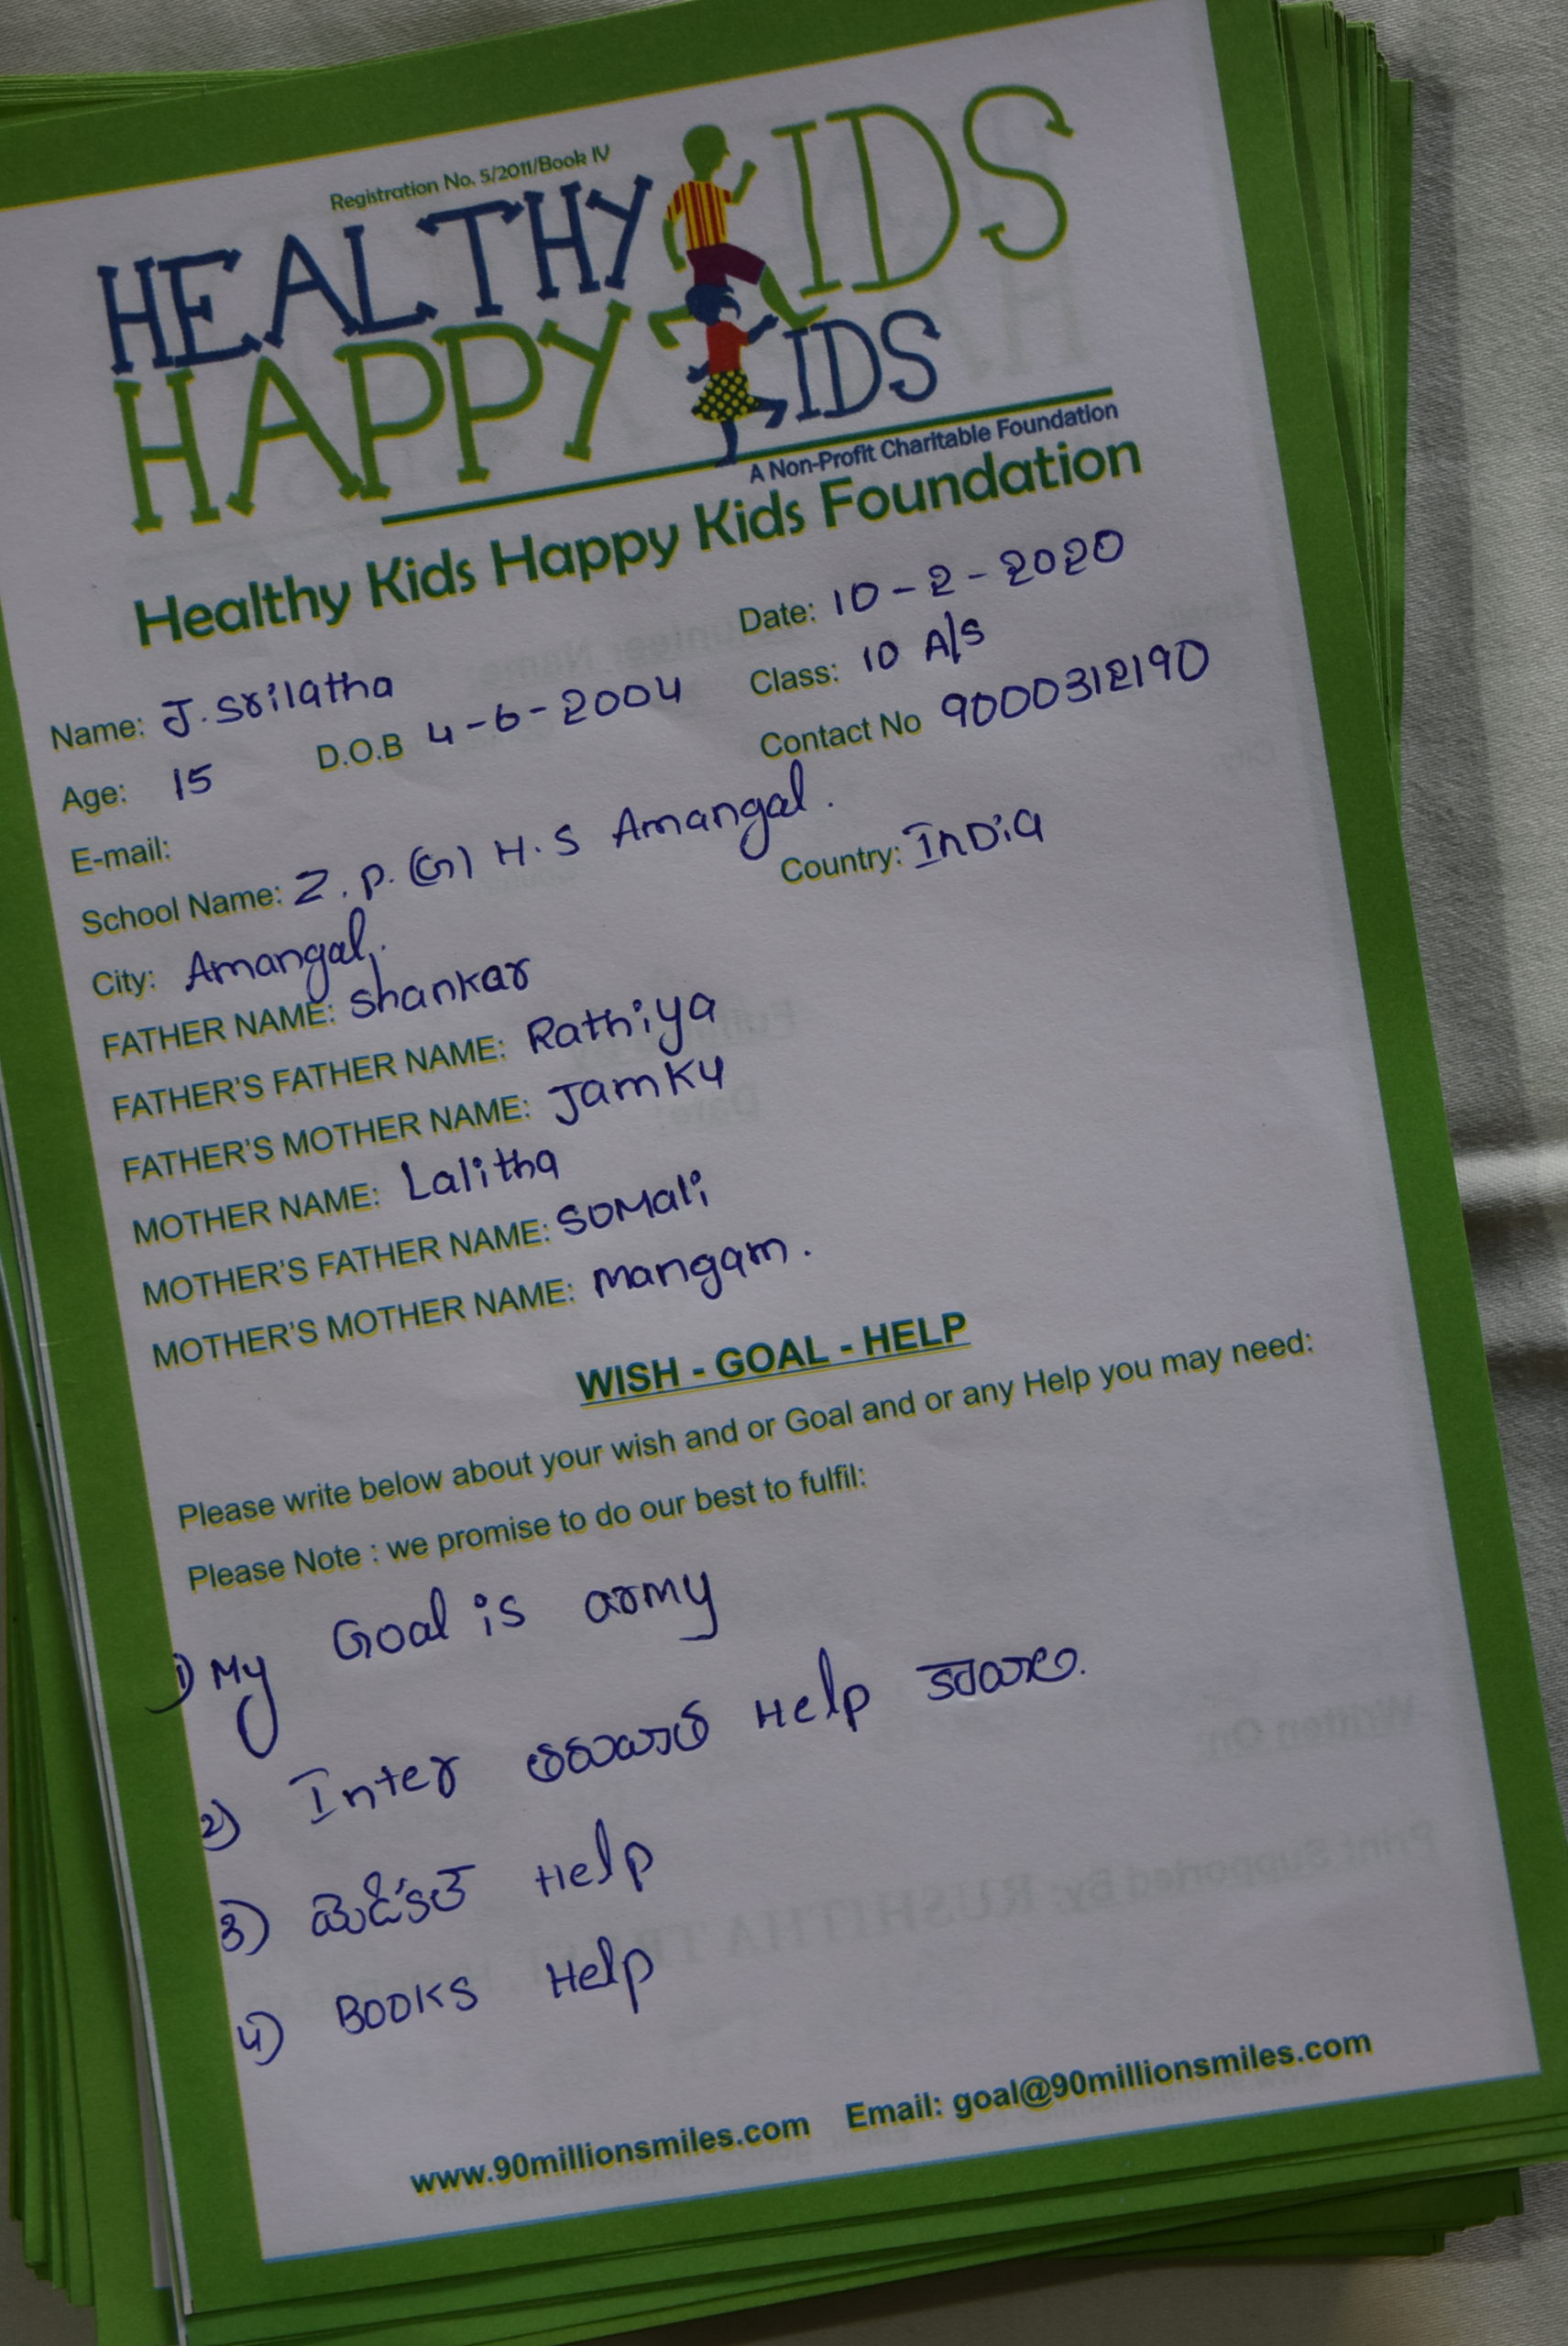 Registration No. 5/2011/Book IV
HEALTHY KIDS
HAPPY KIDS
A Non-Profit Charitable Foundation
Healthy Kids Happy Kids Foundation
Date: 10-2-2020
Name: J. Srilatha Class: 10 A/S
Age: 15 D.O.B 4-6-2004 Contact No 9000312190
E-mail:
School Name: Z.P.(G) H.S Amangal.
City: Amangal. Country: InDia
FATHER NAME: Shankar
FATHER'S FATHER NAME: Rathiya
FATHER'S MOTHER NAME: JamKu
MOTHER NAME: Lalitha
MOTHER'S FATHER NAME: SOMali
MOTHER'S MOTHER NAME: mangam.
WISH - GOAL - HELP
Please write below about your wish and or Goal and or any Help you may need:
Please Note : we promise to do our best to fulfil:
1) My Goal is army
2) Inter తరువాత Help కావాలి.
3) మెడికల్ Help
4) BOOKS Help
www.90millionsmiles.com Email: goal@90millionsmiles.com